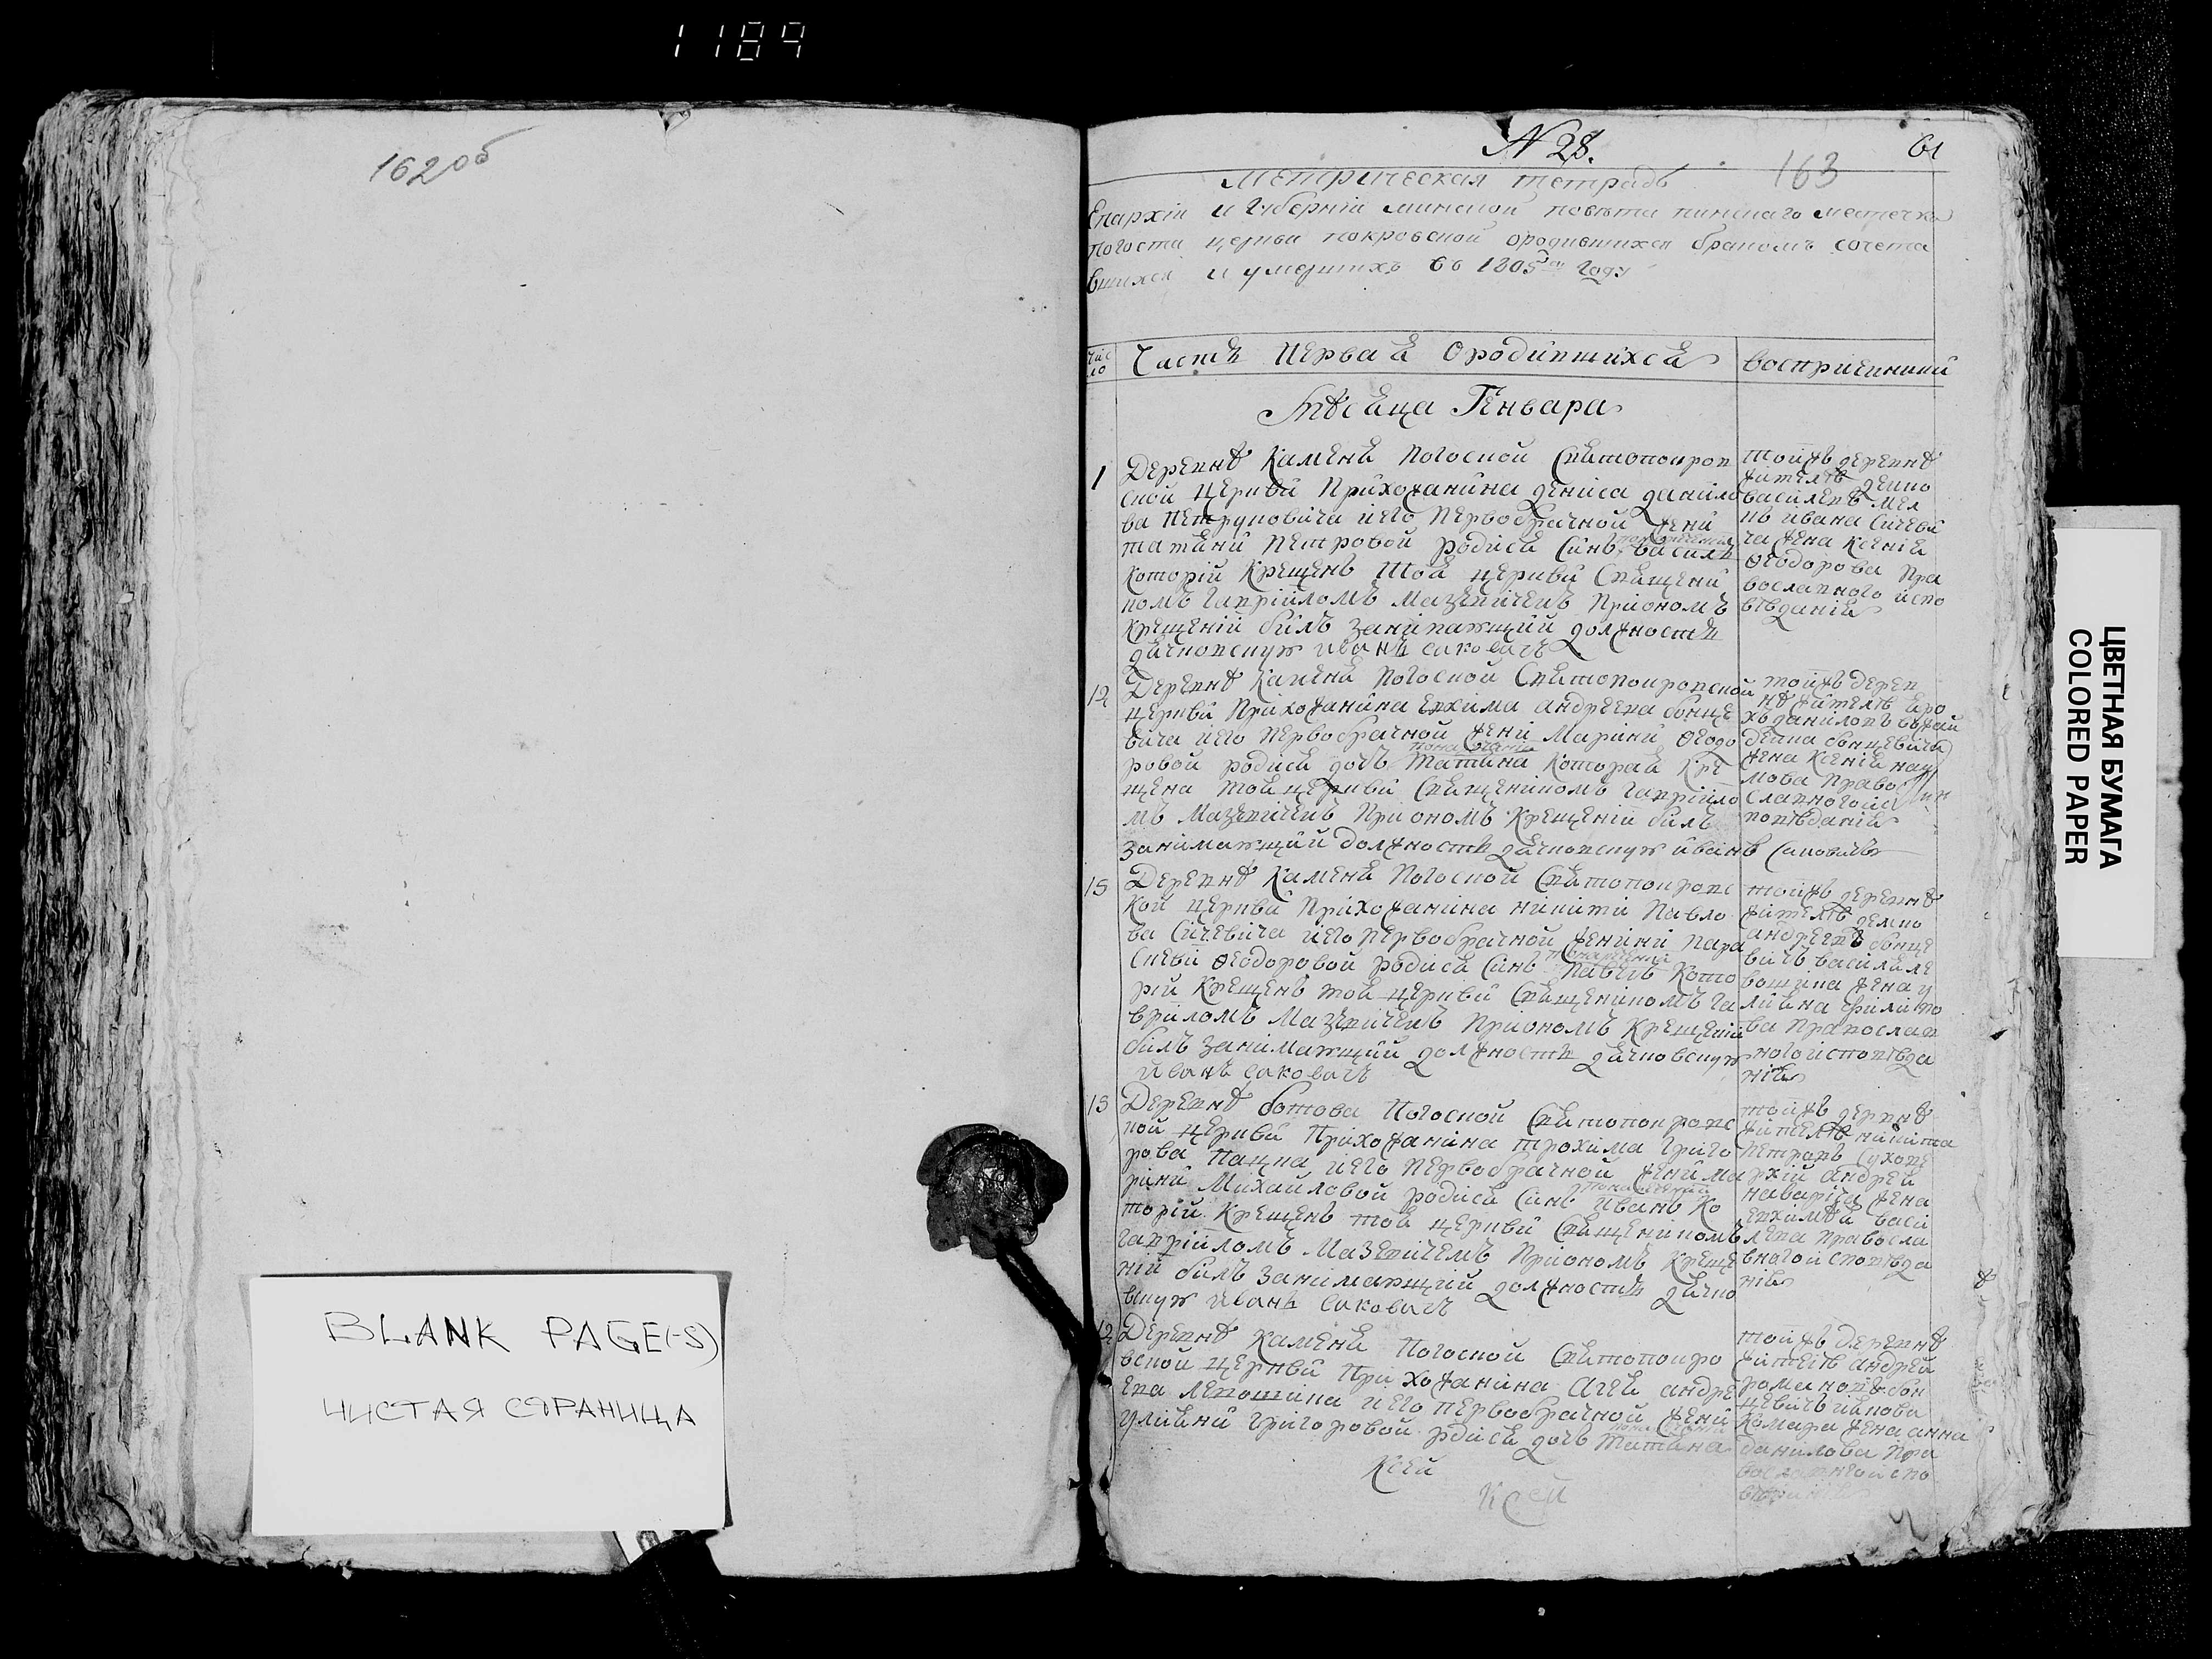 1189
162об
BLANK PAGE(-S)
ЧИСТАЯ СТРАНИЦА
N 28.
61
163
Метрическая тетрадь
Епархіи и Губерніи минской повѣта пинскаго местечка
погоста церкви покровской ородившихся бракомъ сочета
вшихся и умершихъ въ 1805 году
Число
Часть перваѧ Ородившихсѧ
восприемники
Мѣсѧца Генвара
1
Деревнѣ Каменѧ Погоской Свѧтопокров
ской церкви Прихожанина Дениса данило
ва Петруковича иего первобрачной жени
татѧни Петровой родисѧ синъ василь
Которій Крещенъ тоѧ церкви Свѧщени
комъ Гавріиломъ Мазевичемъ Приономъ
Крещеніи билъ занимающій должность
дѧчковскую иванъ саковичъ
тойжъ деревнѣ
житель демко
василевъ
ивана Сичеви
ча жена Ксеніѧ
Ѳеодорова Пра
вославного испо
вѣданіѧ
12
Деревнѣ Каменѧ Погоской Свѧтопокровской
церкви Прихожанина Евхима андреева бонце
вича иего первобрачной жени Марини Ѳеодо
ровой родисѧ дочь татѧна Котораѧ Кре
щена тоѧ церкви Свѧщеникомъ Гавріило
мъ Мазевичемъ Приономъ Крещеніи билъ
занимающій должность дѧчковскую иванъ Саковичъ
тойжъ дерев
нѣ житель
даниловъ
бонцевича
жена Ксеніѧ нау
мова Право
славного ис
повѣданіѧ
15
Деревнѣ Каменѧ Погоской Свѧтопокровс
кой церкви Прихожанина никити Павло
ва Сичевича иего первобрачной жени Пара
скеви Ѳеодоровой родисѧ синъ Павелъ Кото
рій Крещенъ тоѧ церкви Свѧщеникомъ Га
вриломъ Мазевичемъ Приономъ Крещеніи
билъ занимающій должность дѧчковскую
иванъ саковичъ
тойжъ деревнѣ
житель демко
андреевъ бонце
вичъ василѧ ле
вошика жена у
лиѧна Филипо
ва Православ
ного исповѣда
ніѧ
15
Деревнѣ ботова Погоской Свѧтопокровс
кой церкви Прихожанина трохима Григо
рова Пацка иего первобрачной жени ма
рини Михайловой родисѧ синъ Иванъ Ко
торій Крещенъ тоѧ церкви Свѧщеникомъ
Гавріиломъ Мазевичемъ Приономъ Креще
ніи билъ занимающій должность дѧчко
вскую иванъ саковичъ
тойжъ деревнѣ
житель никита
Петровъ Сухове
рхій андреѧ
наварича жена
Евхимѣѧ васи
лева Правосла
вного исповѣда
ніѧ
Деревнѣ Каменѧ Погоской Свѧтопокро
вской церкви Прихожанина Агеѧ андре
ева левошика иего первобрачной жени
улиѧни Григоровой рдисѧ дочь татѧна
тойжъ деревнѣ
житель андрей
романовъ бон
цевичъ ѧкова
Комара жена анна
данилова Пра
Ксей
Ксей
ЦВЕТНАЯ БУМАГА
COLORED PAPER